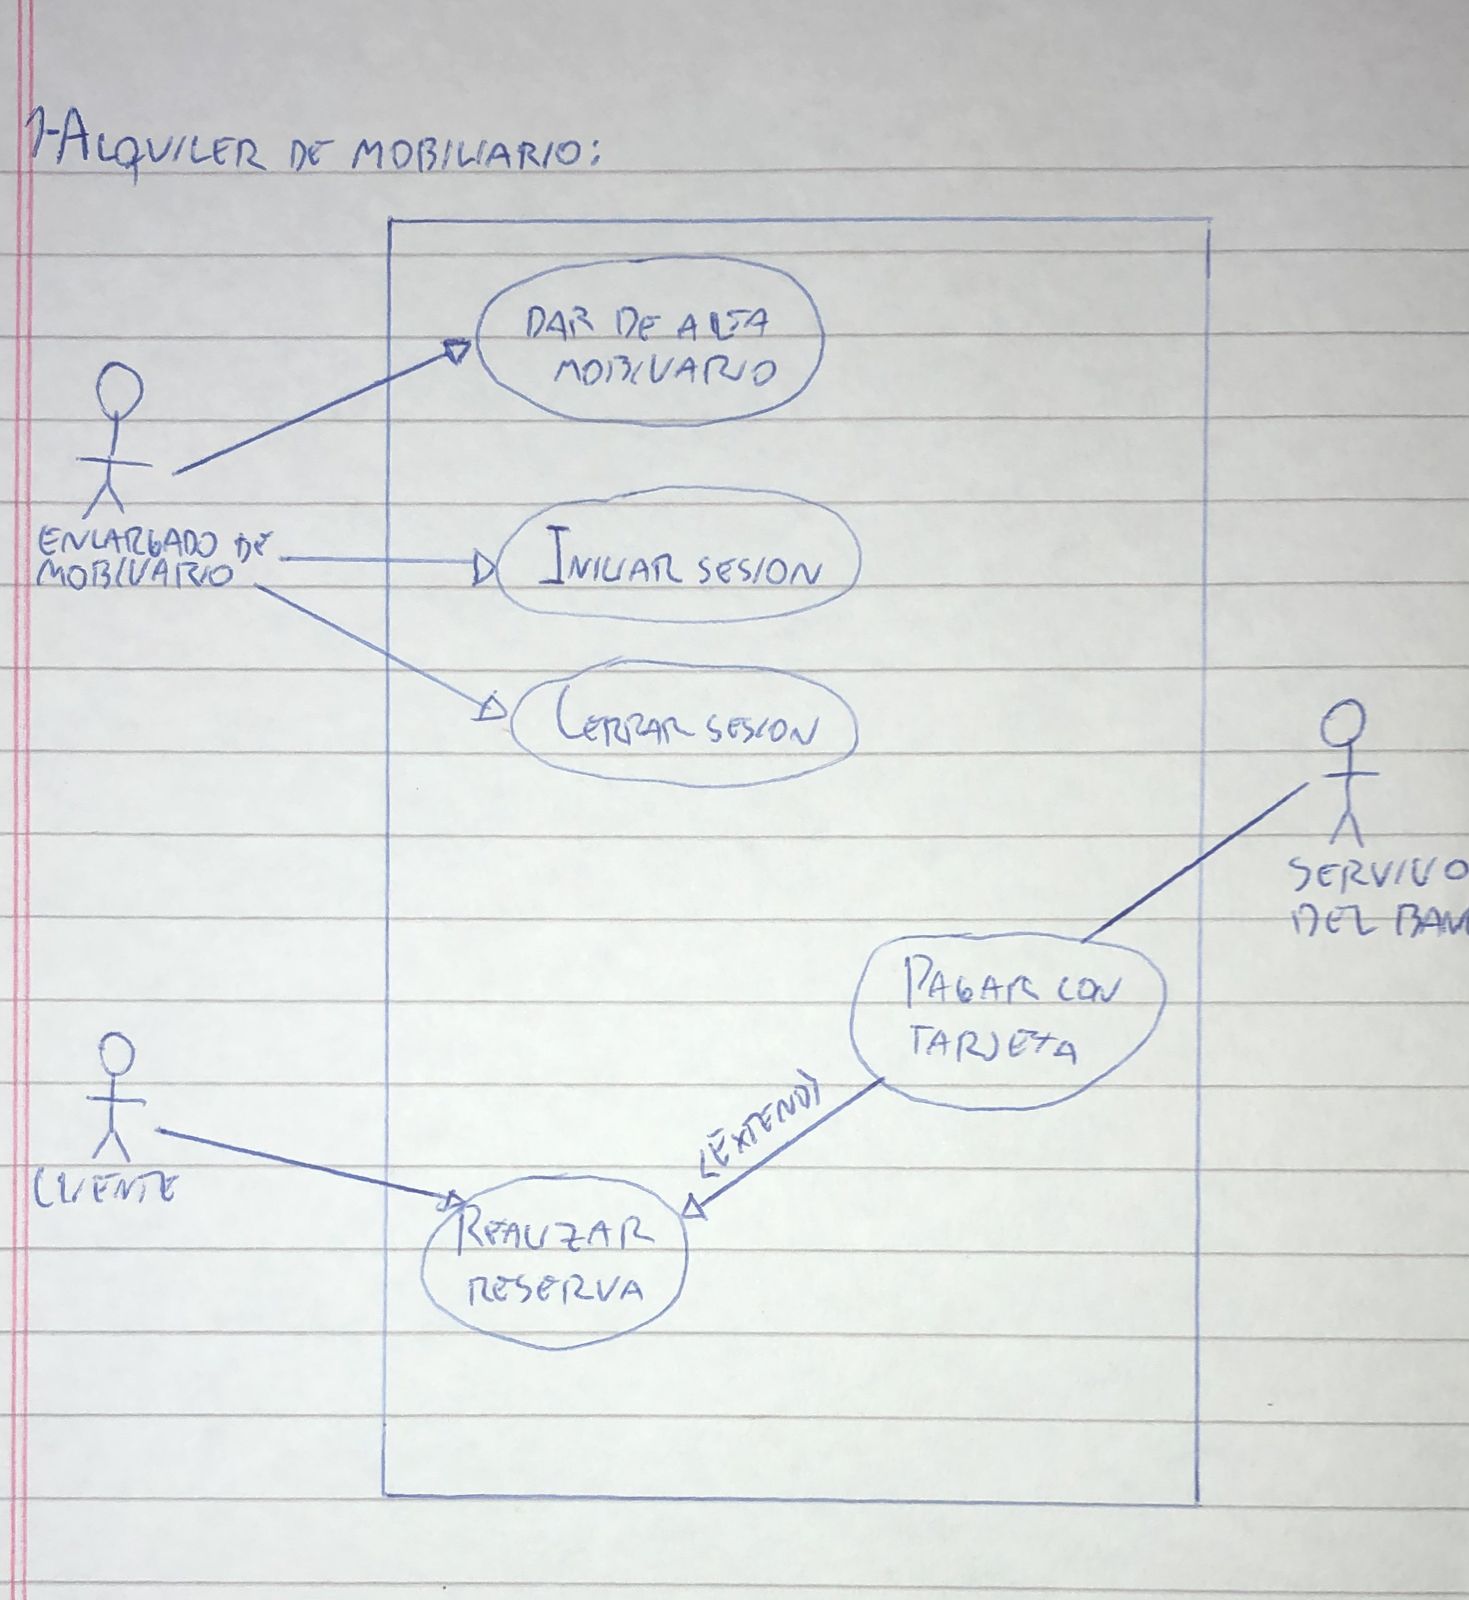 1-ALQUILER DE MOBILIARIO:
DAR DE ALTA
MOBILIARIO
ENCARGADO DE
MOBILIARIO
INICIAR SESION
CERRAR SESION
SERVICIO
DEL BAN
PAGAR CON
TARJETA
<EXTEND>
CLIENTE
REALIZAR
RESERVA